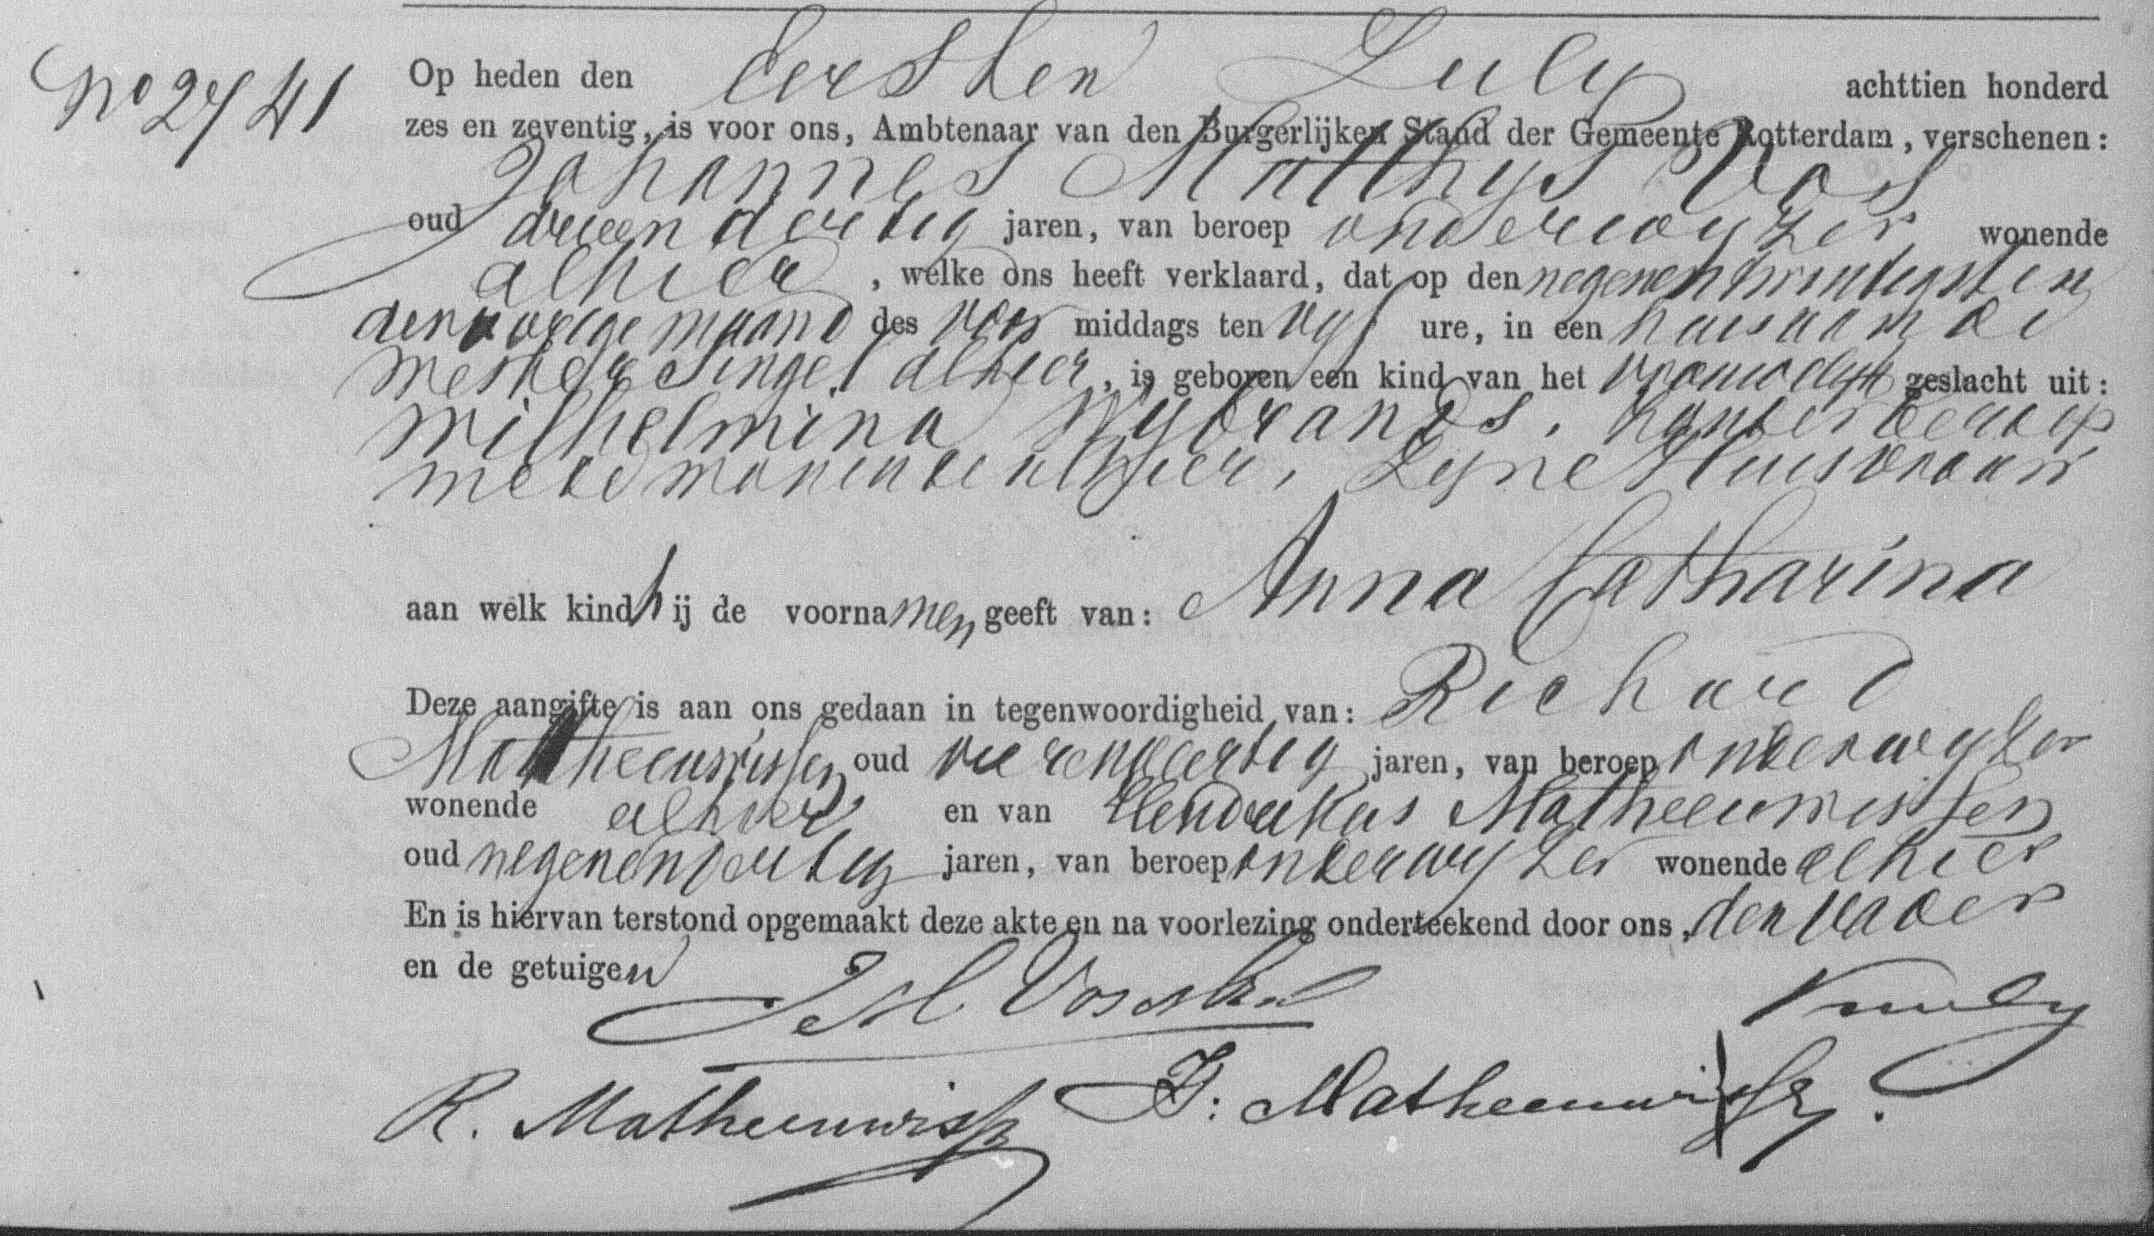 No 2741
Op heden den Eersten July achttien honderd
zes en zeventig, is voor ons, Ambtenaar van den Burgerlijken Stand der Gemeente Rotterdam, verschenen:
Johannes Matthys Vos
oud drieendertig jaren, van beroep onderwyzer wonende
alhier, welke ons heeft verklaard, dat op den negenentwintigsten
der vorige maand des voor middags ten vyf ure, in een huis aan de
alhier, is geboren een kind van het vrouwelyk geslacht uit:
Wilhelmina Wybrands, zonder beroep
mede wonende alhier, zyne Huisvrouw
aan welk kind hij de voornamen geeft van: Anna Catharina
Deze aangifte is aan ons gedaan in tegenwoordigheid van: Richard
Matheeuwissen oud vierenveertig jaren, van beroep onderwyzer
wonende alhier en van Hendrikus Matheeuwissen
oud negenendertig jaren, van beroep onderwyzer wonende alhier
En is hiervan terstond opgemaakt deze akte en na voorlezing onderteekend door ons, den vader
en de getuigen
R. Matheeuwissen H. Matheeuwissen.